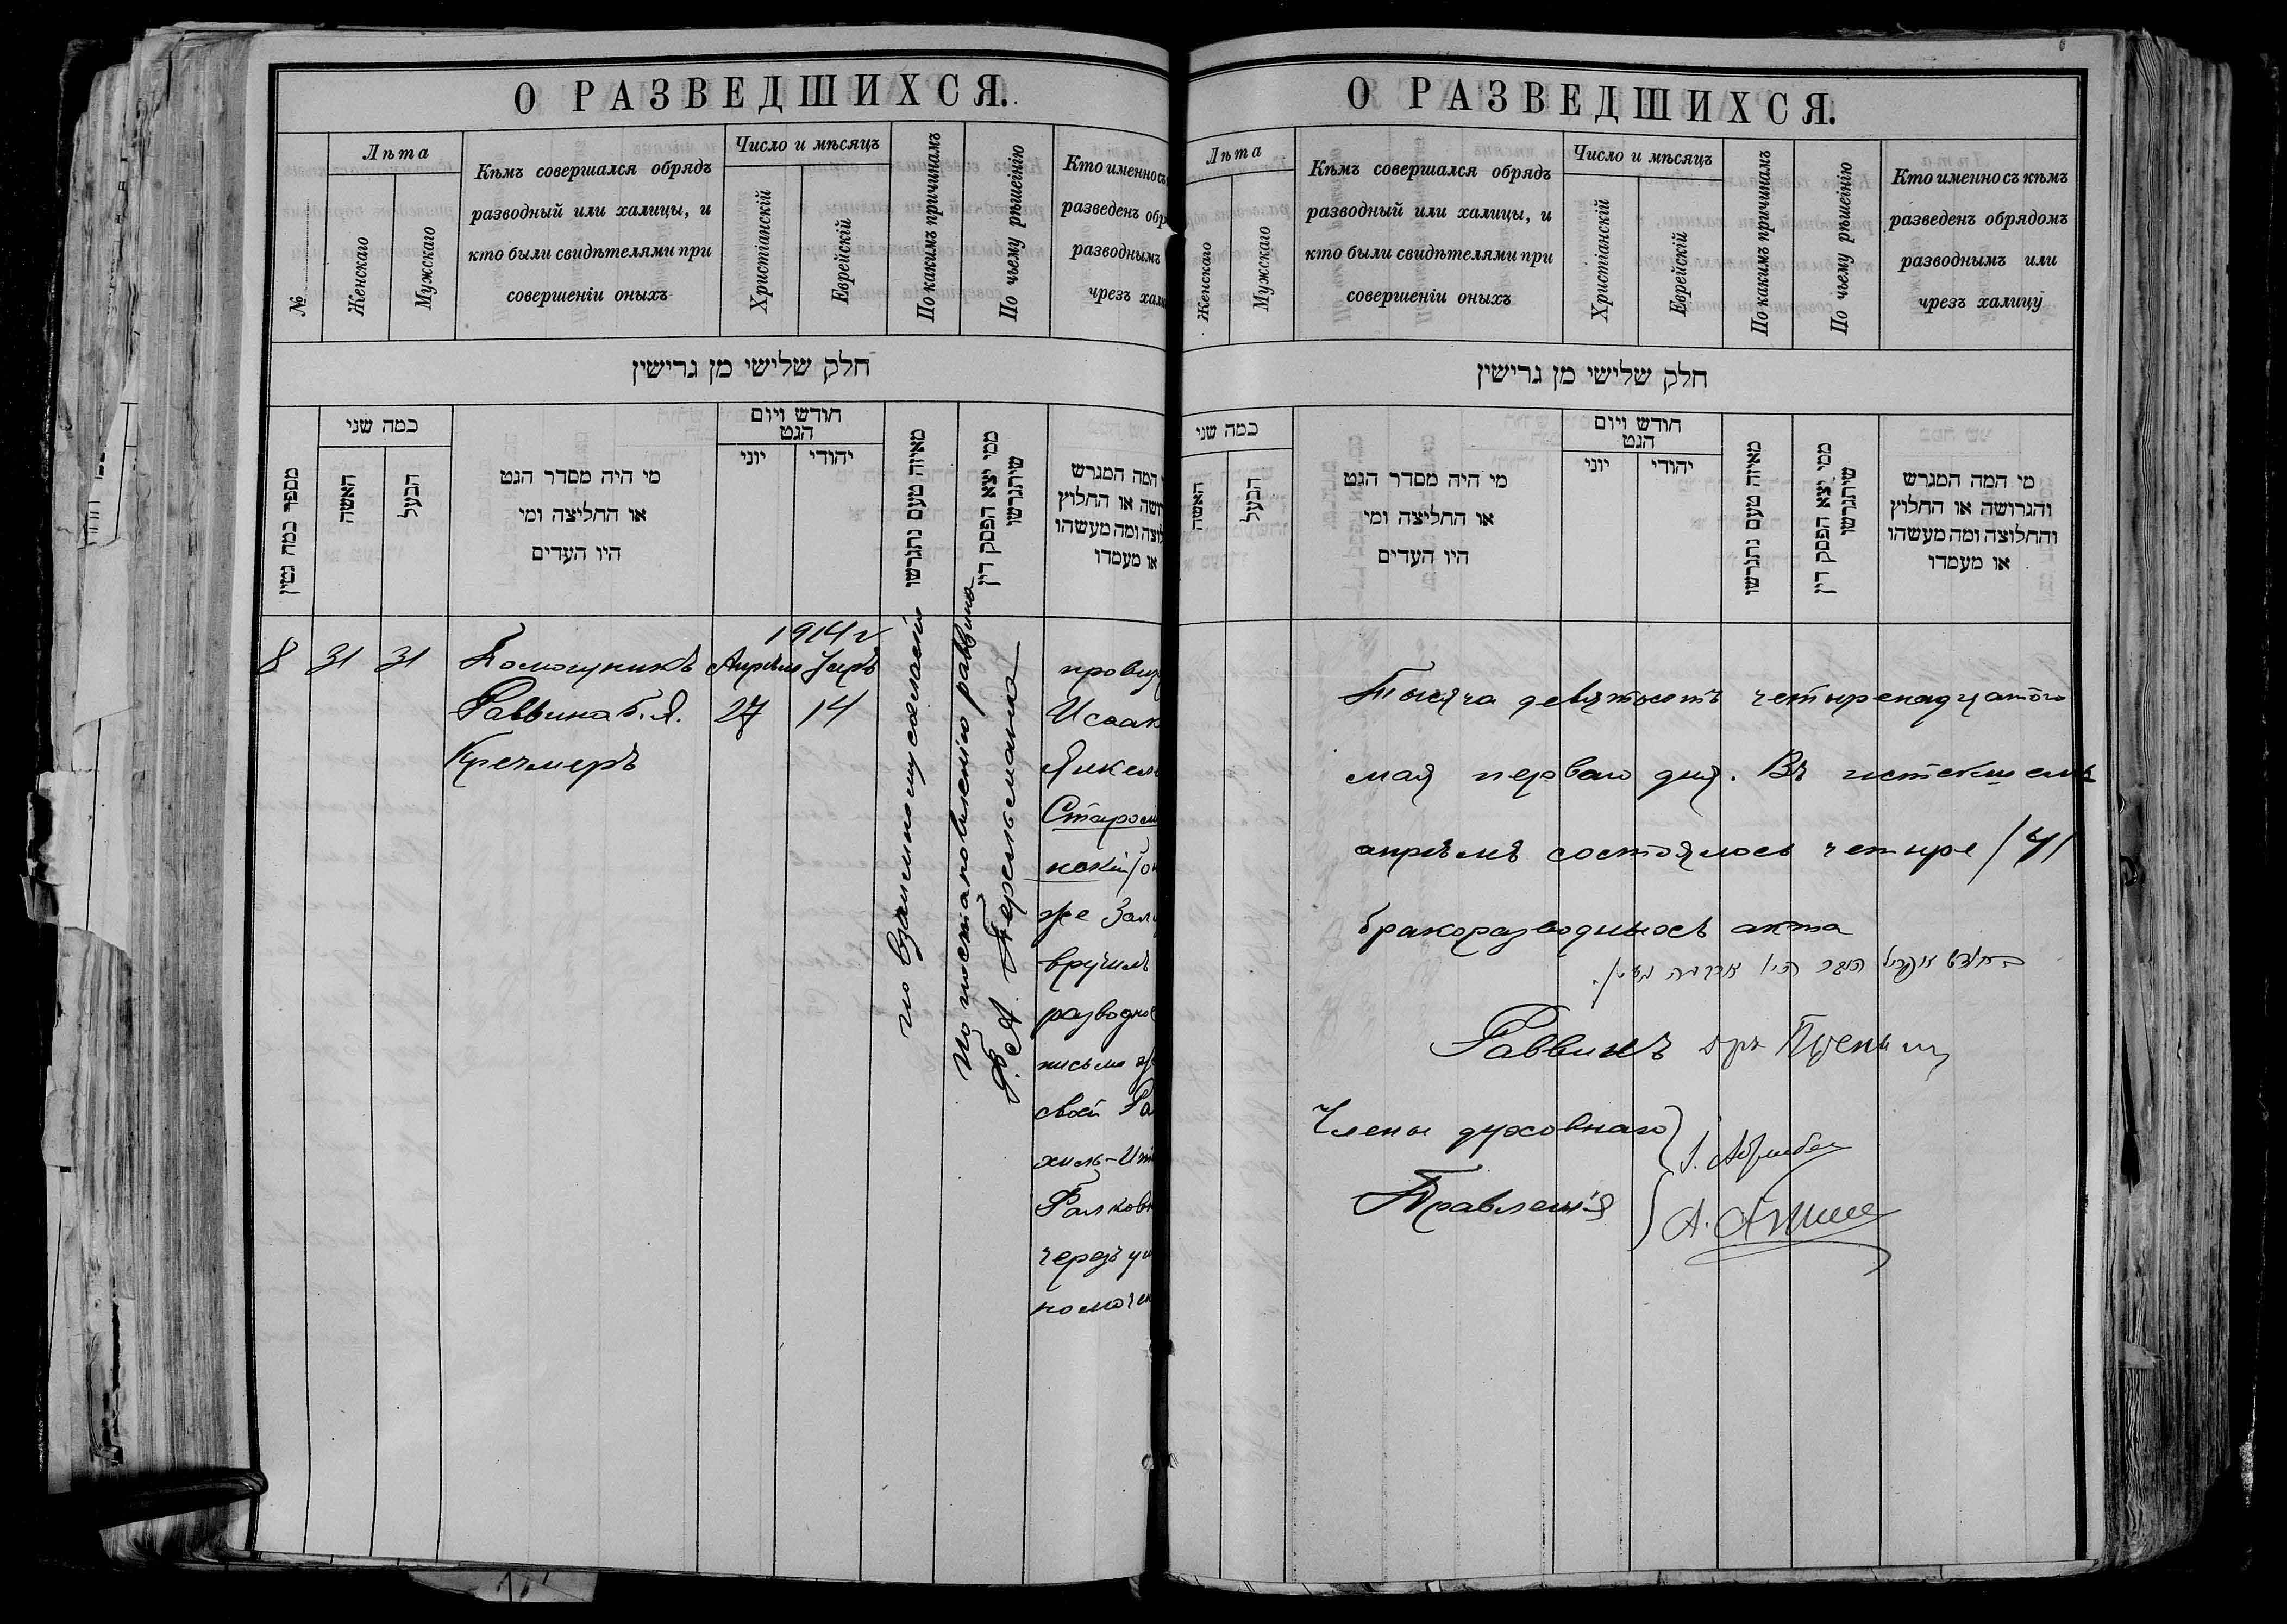 О РАЗВЕДШИХСЯ.
№
Лѣта
Женскаго
Мужскаго
Кѣмъ совершался обрядъ
разводный или халицы, и
кто были свидѣтелями при
совершеніи оныхъ
Число и мѣсяцъ
Христіанскій
Еврейскій
По какимъ причинамъ
По чьему рѣшенію
Кто именно съ
разведенъ обр
разводнымъ
чрезъ хали
חלק שלישי מן גרישין
מספר כמה גטין
כמה שני
האשה
הבעל
מי היה מסדר הגט
או החליצה ומי
היו העדים
חודש ויום
הגט
יוני
יהודי
מאיזה טעם נתגרשו
ממי יצא הפסק דין
שיתגרשו
המה המגרש
רושה או החלוץ
לוצה ומה מעשהו
או מעמדו
1914 г
8 31 31 Помощникъ Апрѣля Іаръ
Раввина Б. Я. 27 14
Кречмеръ
по взаимному согласію
По постановленію раввина
А. Перельмана
провиз
Исаак
Янкель
Старосель
нскій
же Зал
вручилъ
разводное
письмо
своей Ра
хиль-Ит
Фалков
черезъ у
полномочен
О РАЗВЕДШИХСЯ.
Лѣта
Женскаго
Мужскаго
Кѣмъ совершался обрядъ
разводный или халицы, и
кто были свидѣтелями при
совершеніи оныхъ
Число и мѣсяцъ
Христіанскій
Еврейскій
По какимъ причинамъ
По чьему рѣшенію
Кто именно съ кѣмъ
разведенъ обрядомъ
разводнымъ или
чрезъ халицу
חלק שלישי מן גרישין
כמה שני
האשה
הבעל
מי היה מסדר הגט
או החליצה ומי
היו העדים
חודש ויום
הגט
יוני
יהודי
מאיזה טעם נתגרשו
ממי יצא הפסק דין
שיתגרשו
מי המה המגרש
והגרושה או החלוץ
והחלוצה ומה מעשהו
או מעמדו
Тысяча девятьсотъ четыренадцатого
мая перваго дня. Въ истекшемъ
апрѣлѣ состоялось четыре /4/
бракоразводныхъ акта
Раввинъ
Члены духовнаго
Правленія